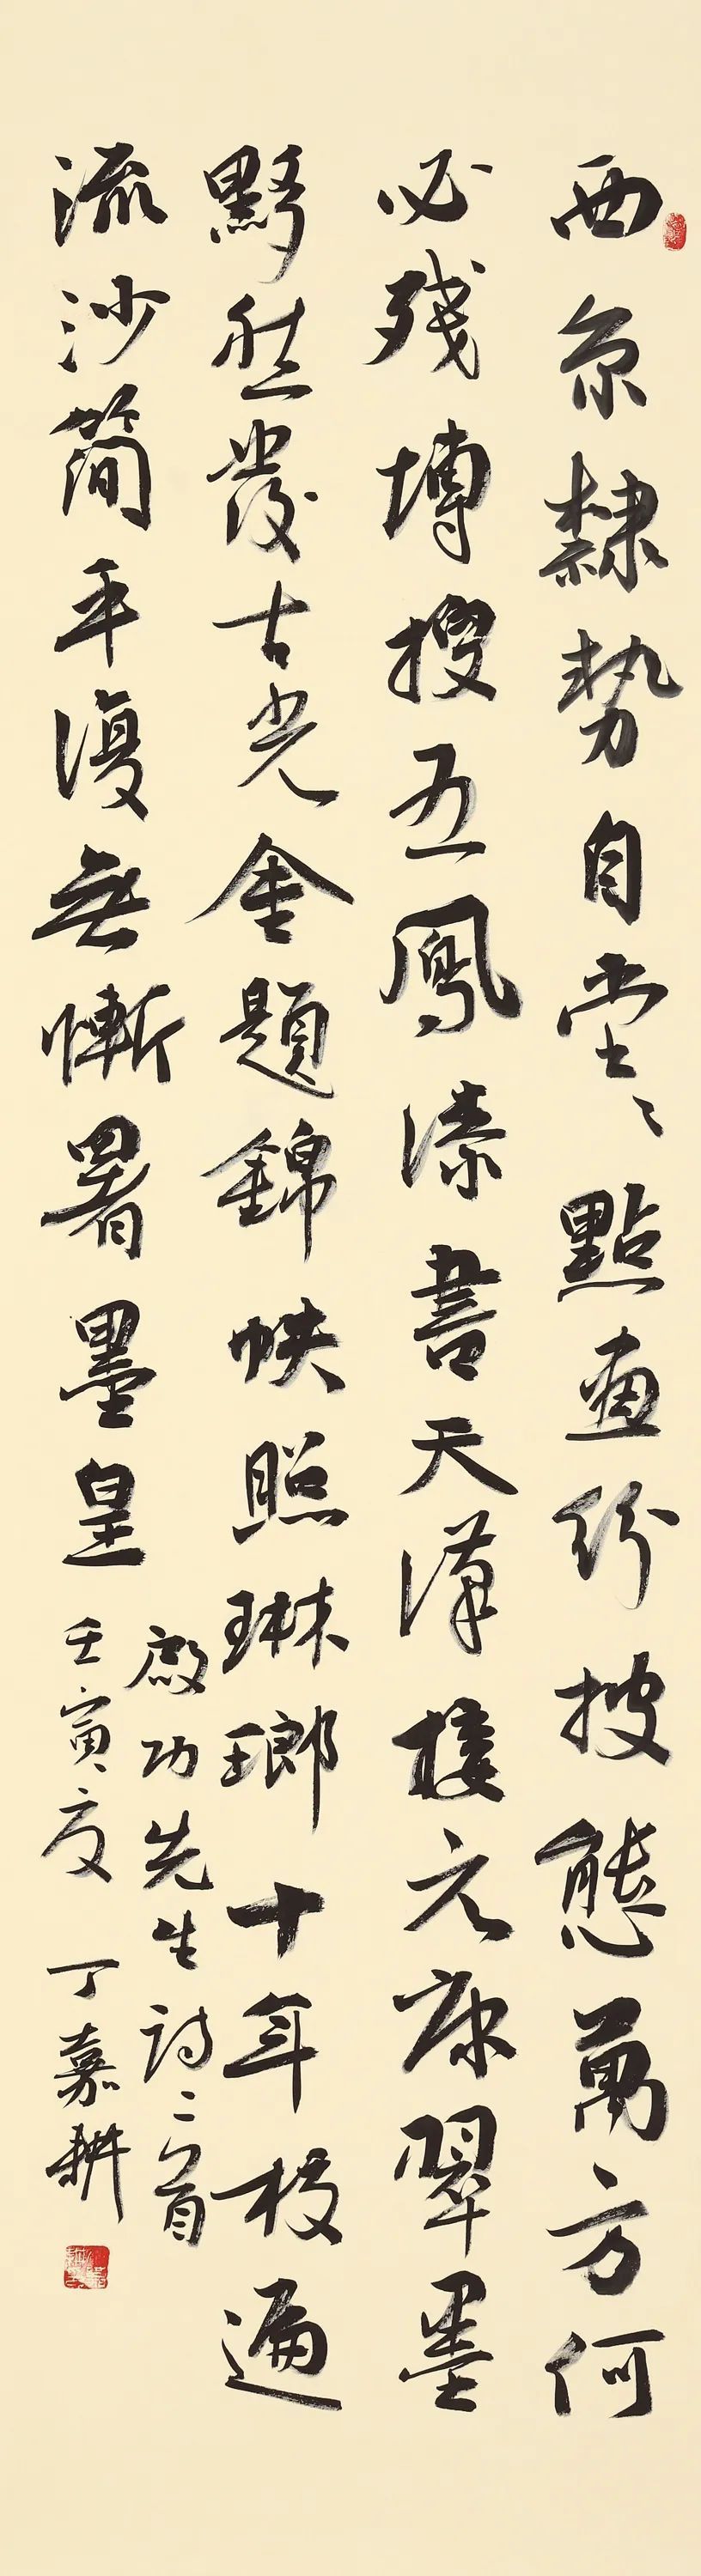 西京隸勢自堂〻點畫紛披態萬方何
必殘塼搜五鳳漆書天漢接元康翠墨
黟然發古光金題錦帙照琳瑯十年校遍
流沙簡平復無慚署墨皇
啟功先生詩二首
壬寅夏 丁嘉耕